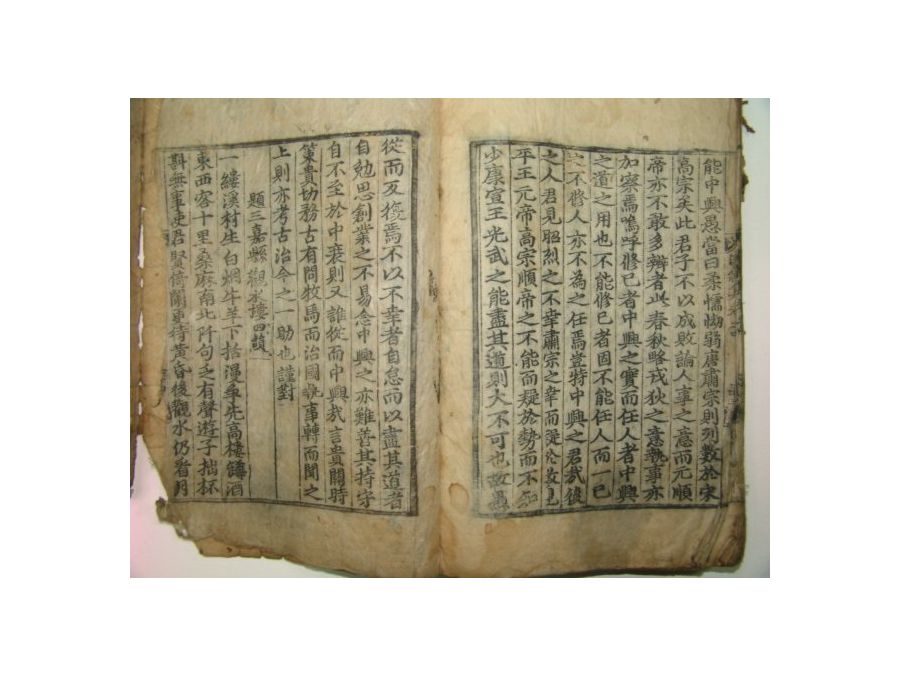 能中興愚當曰柔懦怮弱唐肅宗則列數於宋
高宗矣此君子不以成敗論人事之意而元順
帝亦不敢多辨者此春秋略戎狄之意執事亦
加察焉嗚呼修已者中興之實而任人者中興
之道之用也不能修已者因不能任人而一已
之不修人亦不為之任焉豈特中興之君哉後
之人君見昭烈之不幸肅宗之幸而疑
平王元帝高宗順帝之不能而疑於勢而不知
少康宣王光武之能盡其道則大不可也故愚
從而反復焉不以不幸者自怠而以盡其道者
自勉思創業之不易念中興之亦難善其持守
自不至於中衰則又誰從而中興哉言貴關時
策貴切務古有問牧馬而治國執事轉而聞之
上則亦考古治今之一助也謹對
題三嘉縣觀水樓四韻
一縷溪村生白烟牛羊下括漫爭先高樓鐏酒
東西客十里桑麻南北阡句乏有聲遊子拙杯
斟無事使君賢倚闌更待黃昏後觀水仍看月